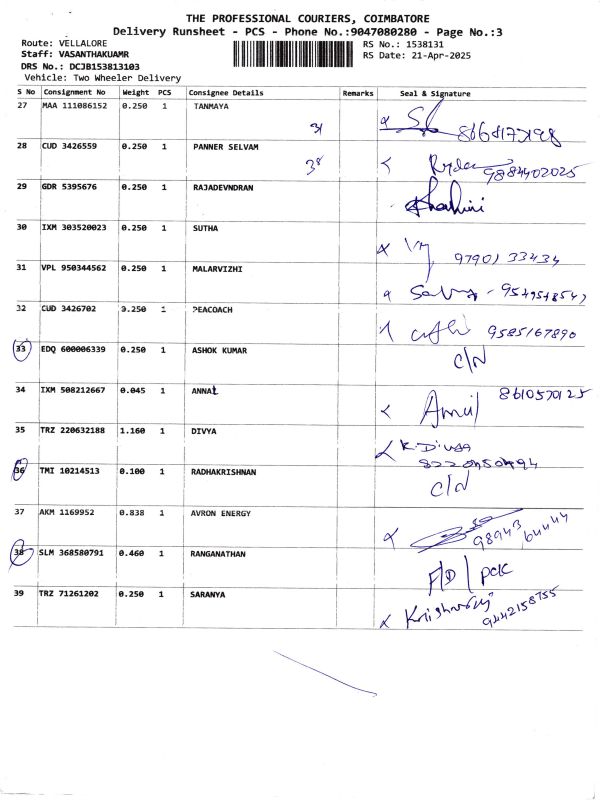 THE PROFESSIONAL COURIERS, COIMBATORE
Delivery Runsheet - PCS - Phone No.:9047080280 - Page No.:3
Route: VELLALORE RS No.: 1538131
Staff: VASANTHAKUAMR RS Date: 21-Apr-2025
DRS No.: DCJB153813103
Vehicle: Two Wheeler Delivery
S No Consignment No Weight PCS Consignee Details Remarks Seal & Signature
27 MAA 111086152 0.250 1 TANMAYA
28 CUD 3426559 0.250 1 PANNER SELVAM 9884402025
29 GDR 5395676 0.250 1 RAJADEVNDRAN
30 IXM 303520023 0.250 1 SUTHA 97901 33434
31 VPL 950344562 0.250 1 MALARVIZHI
32 CUD 3426702 0.250 1 PEACOACH 9585167890
33 EDQ 600006339 0.250 1 ASHOK KUMAR C/N
34 IXM 508212667 0.045 1 ANNAL 8610570125
35 TRZ 220632188 1.160 1 DIVYA K. Divya
36 TMI 10214513 0.100 1 RADHAKRISHNAN C/N
37 AKM 1169952 0.838 1 AVRON ENERGY 98943 64444
38 SLM 368580791 0.460 1 RANGANATHAN F/D
39 TRZ 71261202 0.250 1 SARANYA 9442158755